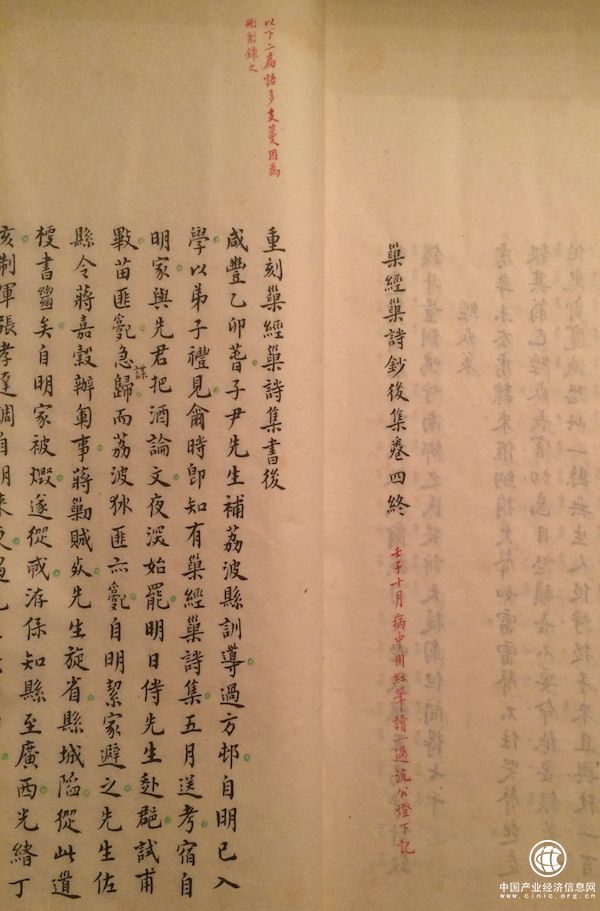 巢經巢詩鈔後集卷四終
壬子十月病中用紅筆讀一過沅公燈下記
以下二扁語多支蔓因為
刪削錄之
重刻巢經巢詩集書後
咸豐乙卯萅子尹先生補荔波縣訓導過方邨自明已入
學以弟子禮見龠時即知有巢經巢詩集五月送考宿自
明家與先君把酒論文夜深始罷明日侍先生赴郡試甫
苗匪亂急歸而荔波匪亦亂自明絜家避之先生佐
謀
縣令蔣嘉穀辦軍事蔣勦賊先生旋省縣城陷從此道
梗書矣自明家被燬遂從戎游保知縣至廣西光緒丁
亥制軍張孝達調自明來
中国产业经济信息网
www.cinic.org.cn